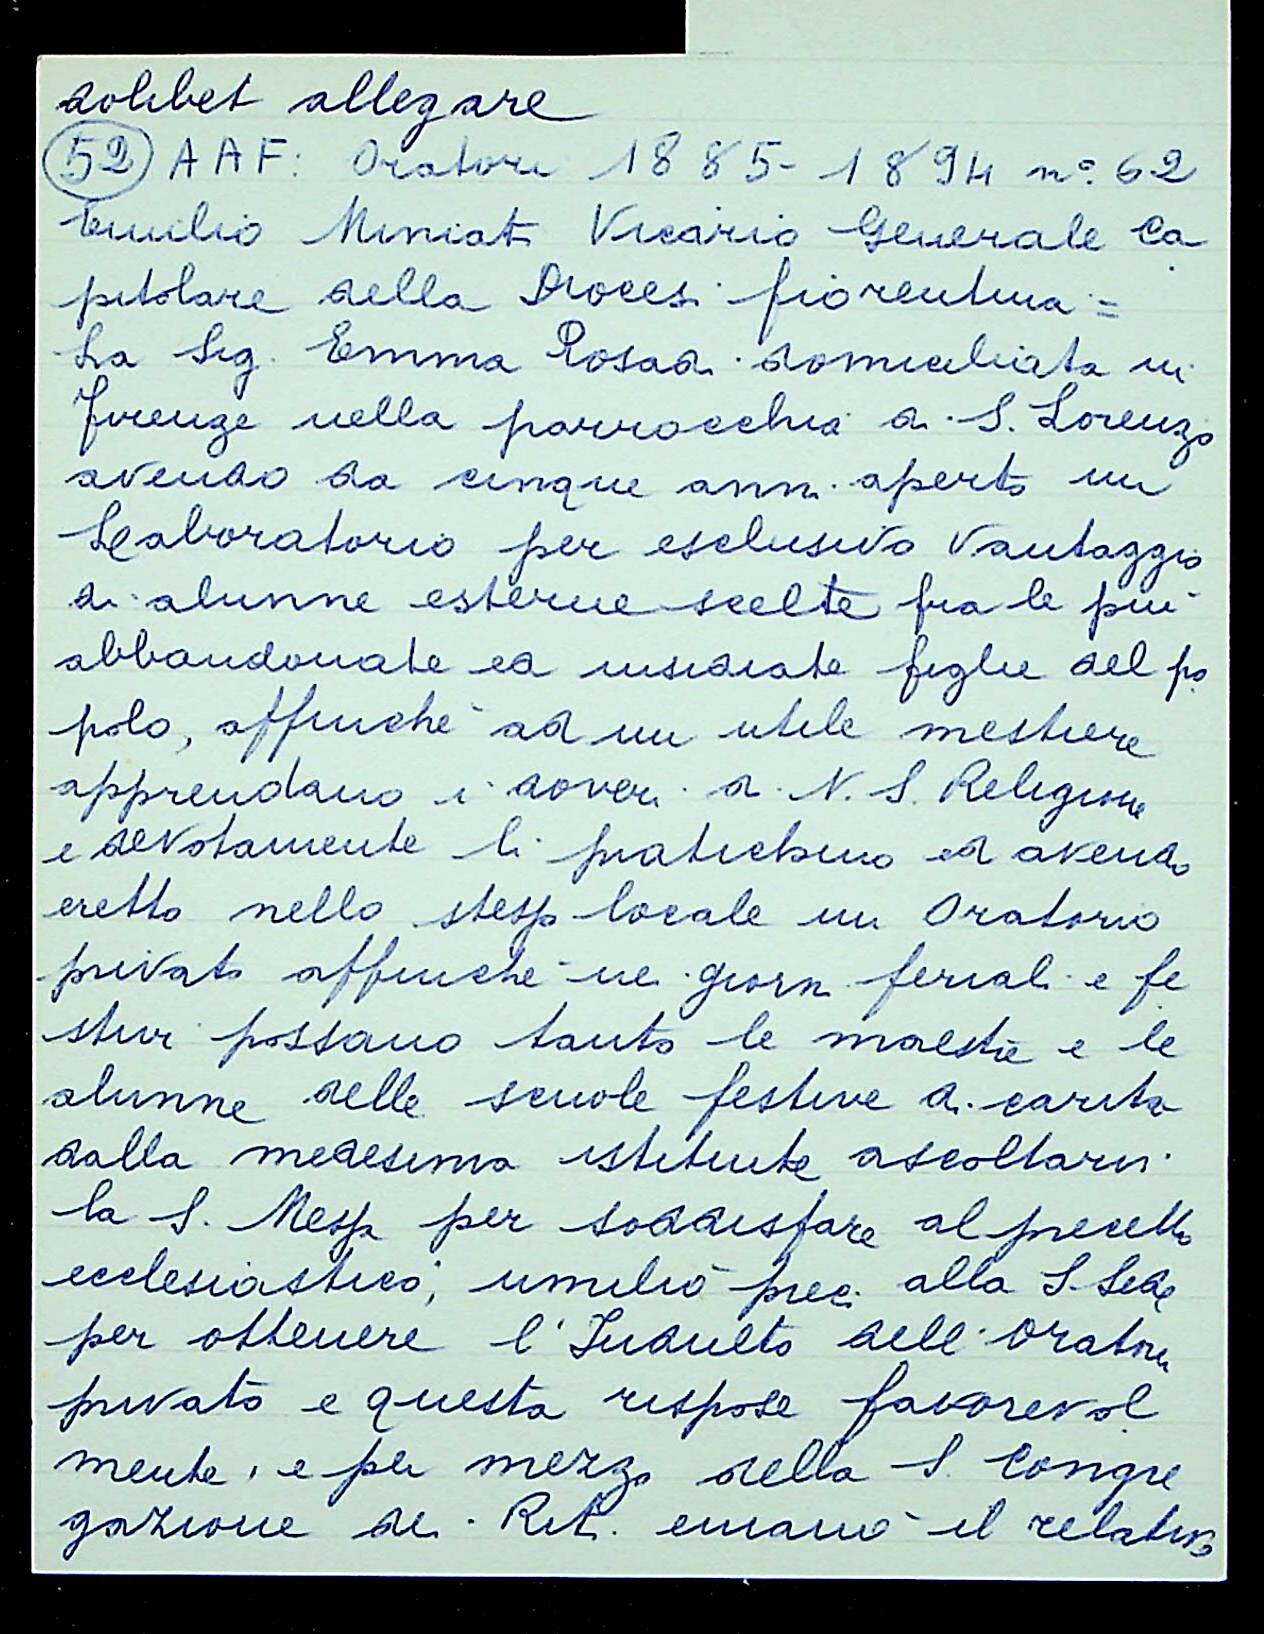 dolibet allegare
52 AAF: Oratori 1885-1894 n° 62
Emilio Miniati Vicario Generale Ca
pitolare della Diocesi fiorentina =
La Sig. Emma Rosadi domiciliata in
Firenze nella parrocchia di S. Lorenzo
avendo da cinque anni aperto un
Laboratorio per esclusivo vantaggio
di alunne esterne scelte fra le più
abbandonate ed insidiate figlie del po
polo, affinché ad un utile mestiere
apprendano i doveri di N. S. Religione
e devotamente li pratichino ed avendo
eretto nello stesso locale un Oratorio
privato affinché nei giorni feriali e fe
stivi possano tanto le maestre e le
alunne delle scuole festive di carità
dalla medesima istituite ascoltarvi
la S. Messa per soddisfare al precetto
ecclesiastico, umiliò preci alla S. Sede
per ottenere l'Indulto dell'Oratorio
privato e questa rispose favorevol
mente, e per mezzo della S. Congre
gazione dei Riti emanò il relativo